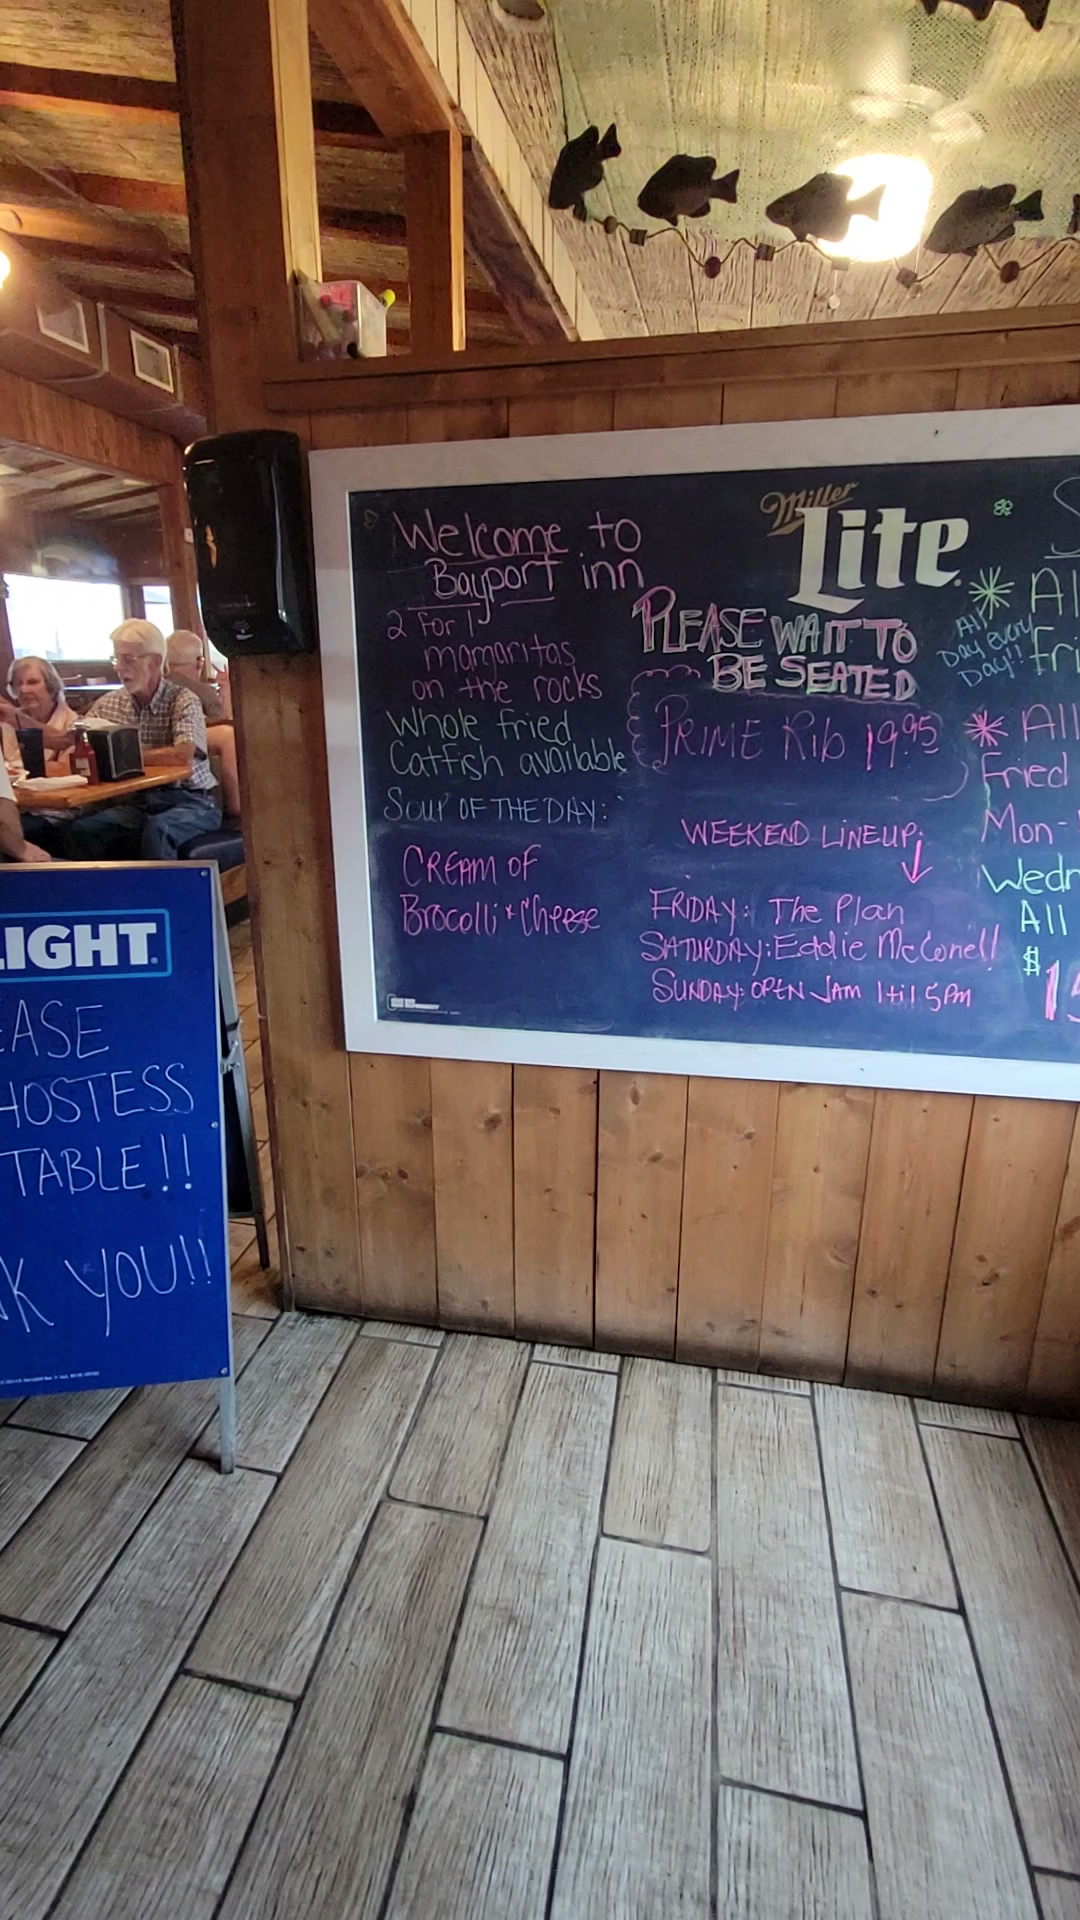 Welcome to
Bayport inn
2 for 1
margaritas
on the rocks
Whole fried
Catfish available
SOUP OF THE DAY:
CREAM OF
Brocolli + Cheese
Miller
Lite
PLEASE WAIT TO
BE SEATED
PRIME Rib 19.95
WEEKEND LINEUP:
FRIDAY: The Plan
SATURDAY: Eddie McConell
SUNDAY: OPEN JAM 1 til 5pm
All
All
Day every
Day!!
fri
All
Fried
Mon-
Wedn
All
$15
LIGHT
EASE
HOSTESS
TABLE!!
K YOU!!